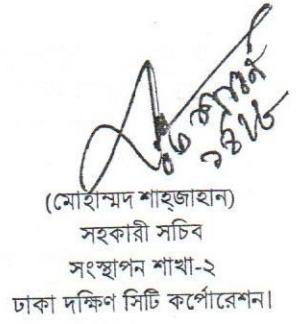 (মোহাম্মদ শাহ্‌জাহান)
সহকারী সচিব
সংস্থাপন শাখা-২
ঢাকা দক্ষিণ সিটি কর্পোরেশন।